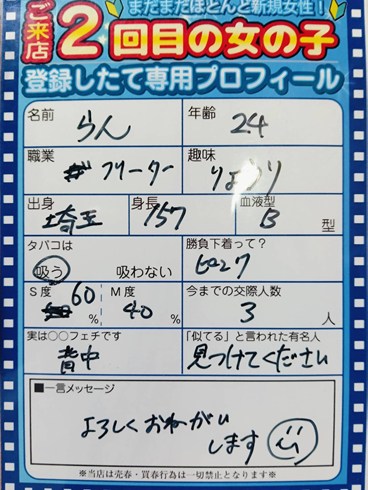 まだまだほとんど新規女性！
ご来店2回目の女の子
登録したて専用プロフィール
名前 らん 年齢 24
職業 フリーター 趣味 りょうり
出身 埼玉 身長 157 血液型 B 型
タバコは 吸う 吸わない
勝負下着って？ ピンク
S度 60 % M度 40 %
今までの交際人数 3 人
実は○○フェチです 背中
「似てる」と言われた有名人 見つけてください
■一言メッセージ
よろしくおねがい
します
※当店は売春・買春行為は一切禁止となります※